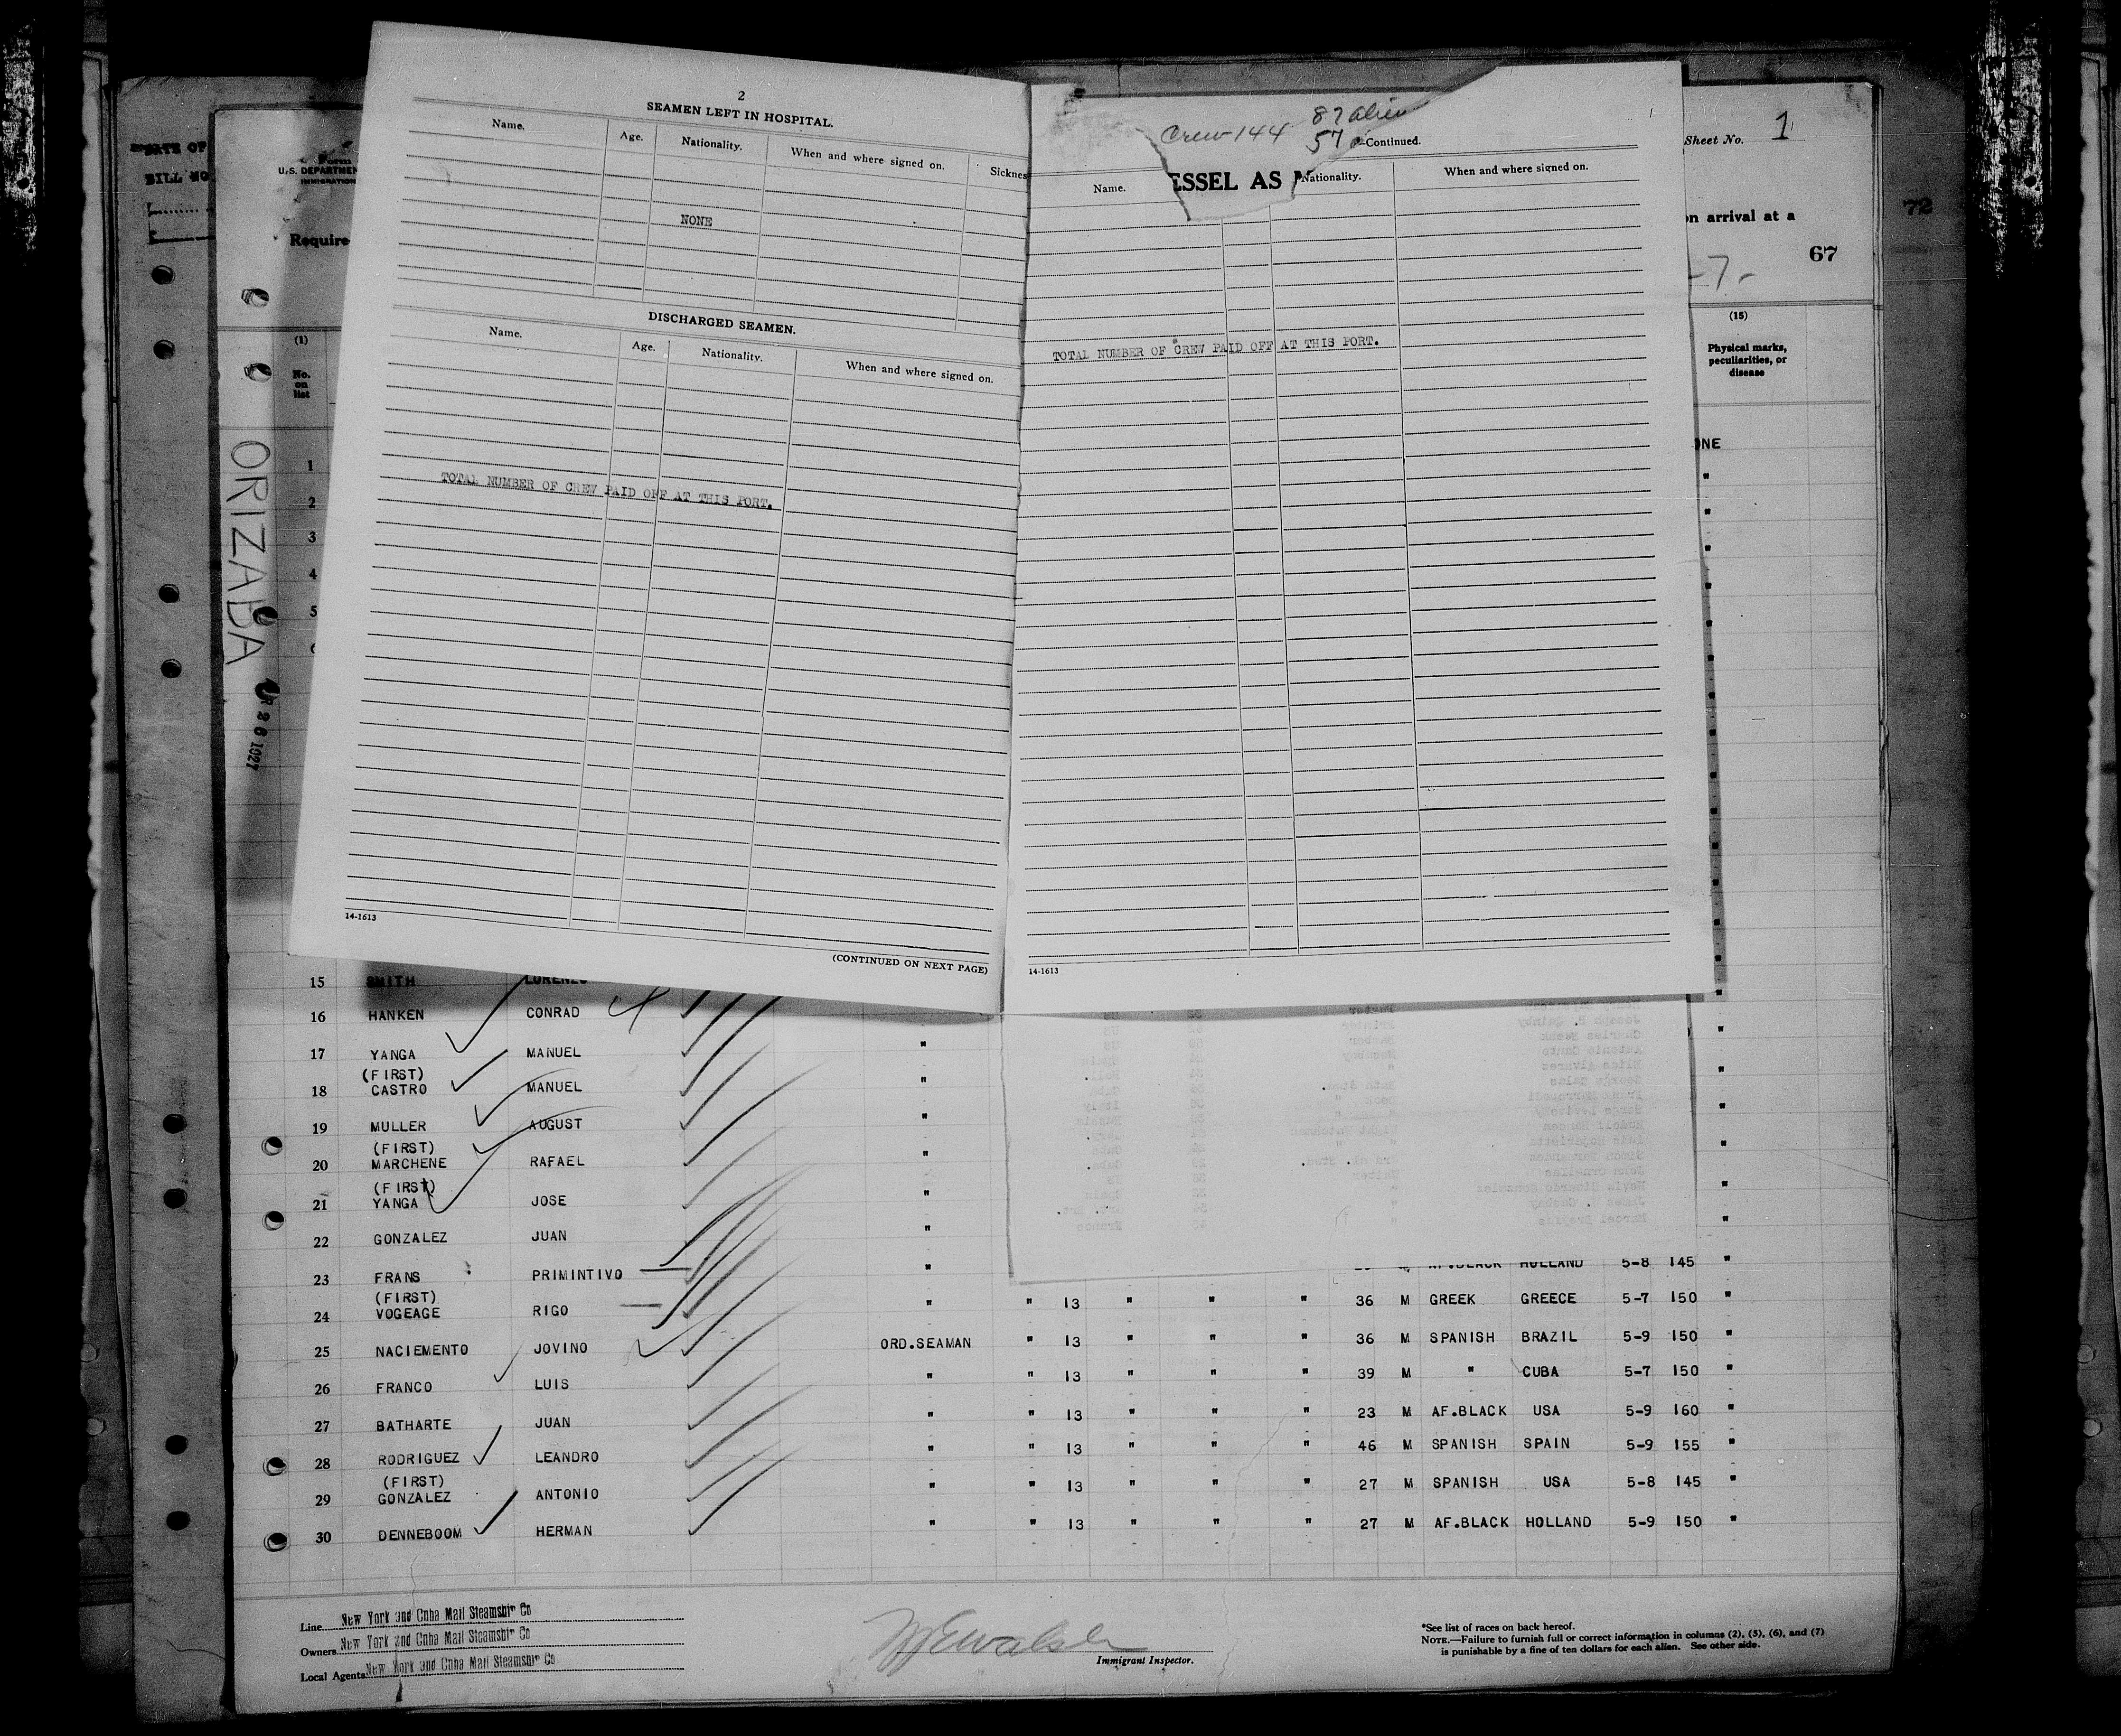 2
SEAMEN LEFT IN HOSPITAL.
Name. Age. Nationality. When and where signed on.
NONE
DISCHARGED SEAMEN.
Name. Age. Nationality. When and where signed on.
TOTAL NUMBER OF CREW PAID OFF AT THIS PORT.
14-1613
(CONTINUED ON NEXT PAGE)
Crew-144 87 alien
57 —Continued.
Name. Nationality. When and where signed on.
ESSEL AS
TOTAL NUMBER OF CREW PAID OFF AT THIS PORT.
14-1613
BILL NO
Form
U.S. DEPARTMEN
IMMIGRATION
Require
Sheet No. 1
on arrival at a
67
72
-7-
(1)
No. on list
(15)
Physical marks, peculiarities, or disease
ONE
ORIZABA
26 1927
1
2
3
4
5
15 SMITH LORENZO
16 HANKEN CONRAD
17 YANGA MANUEL "
(FIRST)
18 CASTRO MANUEL "
19 MULLER AUGUST "
(FIRST)
20 MARCHENE RAFAEL "
(FIRST)
21 YANGA JOSE "
22 GONZALEZ JUAN "
23 FRANS PRIMINTIVO " AF.BLACK HOLLAND 5-8 145 "
(FIRST)
24 VOGEAGE RIGO " " 13 " " " 36 M GREEK GREECE 5-7 150 "
25 NACIEMENTO JOVINO ORD.SEAMAN " 13 " " " 36 M SPANISH BRAZIL 5-9 150 "
26 FRANCO LUIS " " 13 " " " 39 M " CUBA 5-7 150 "
27 BATHARTE JUAN " " 13 " " " 23 M AF.BLACK USA 5-9 160 "
28 RODRIGUEZ LEANDRO " " 13 " " " 46 M SPANISH SPAIN 5-9 155 "
(FIRST)
29 GONZALEZ ANTONIO " " 13 " " " 27 M SPANISH USA 5-8 145 "
30 DENNEBOOM HERMAN " " 13 " " " 27 M AF.BLACK HOLLAND 5-9 150 "
Line New York and Cuba Mail Steamship Co
Owners New York and Cuba Mail Steamship Co
Local Agents New York and Cuba Mail Steamship Co
Immigrant Inspector.
*See list of races on back hereof.
NOTE.—Failure to furnish full or correct information in columns (2), (5), (6), and (7)
is punishable by a fine of ten dollars for each alien. See other side.